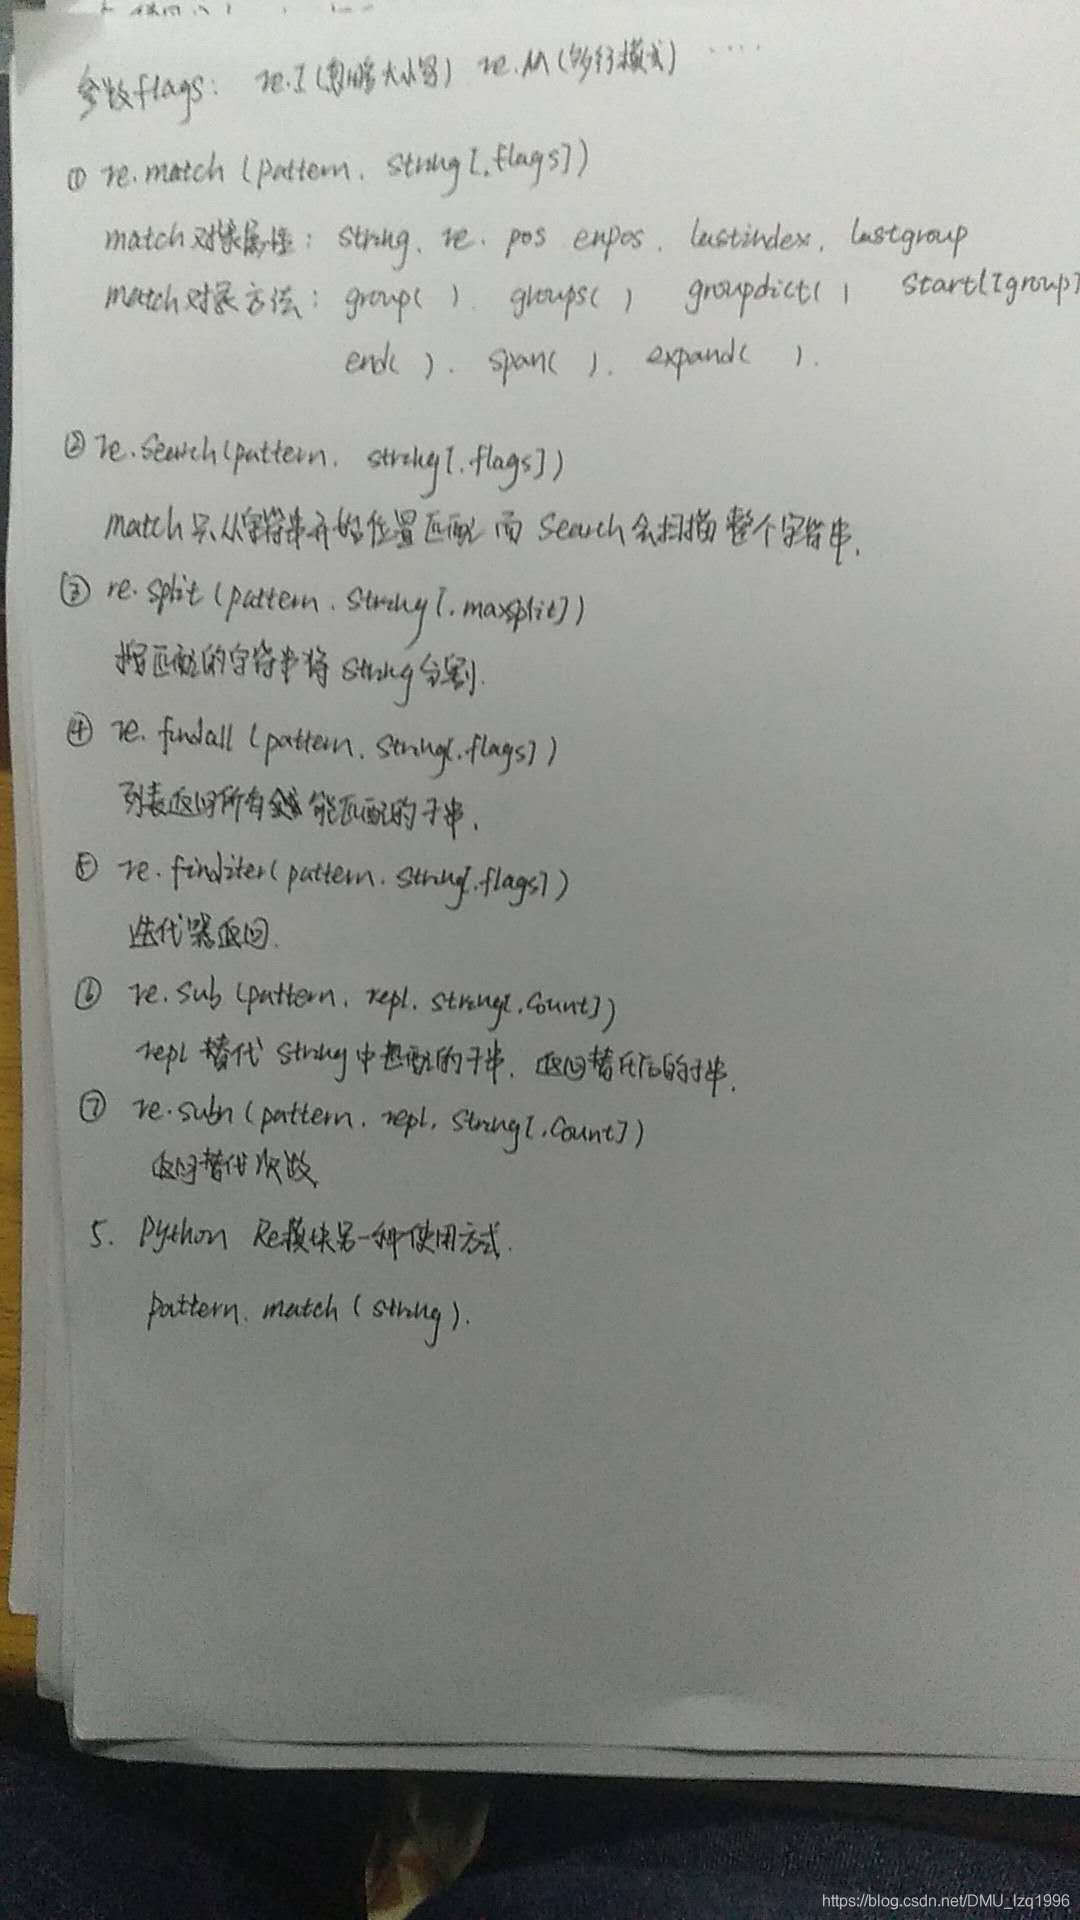 参数flags: re.I(忽略大小写) re.M(多行模式) ....
① re.match (pattern, string[,flags])
match对象属性: string, re. pos enpos. lastindex, lastgroup
match对象方法: group( ). groups( ) groupdict( ) start([group]
end( ). span( ). expand( ).
② re.search(pattern, string[,flags])
match只从字符串开始位置匹配 而 search会扫描整个字符串.
③ re.split (pattern, string[,maxsplit])
按匹配的字符串将 string分割.
④ re.findall (pattern, string[,flags])
列表返回所有 能匹配的子串.
⑤ re.finditer(pattern, string[,flags])
迭代器返回.
⑥ re.sub (pattern, repl, string[,count])
repl 替代 string中匹配的子串, 返回替代后的子串.
⑦ re.subn (pattern, repl, string[,count])
返回替代次数
5. Python Re模块另一种使用方式.
pattern.match(string).
https://blog.csdn.net/DMU_lzq1996